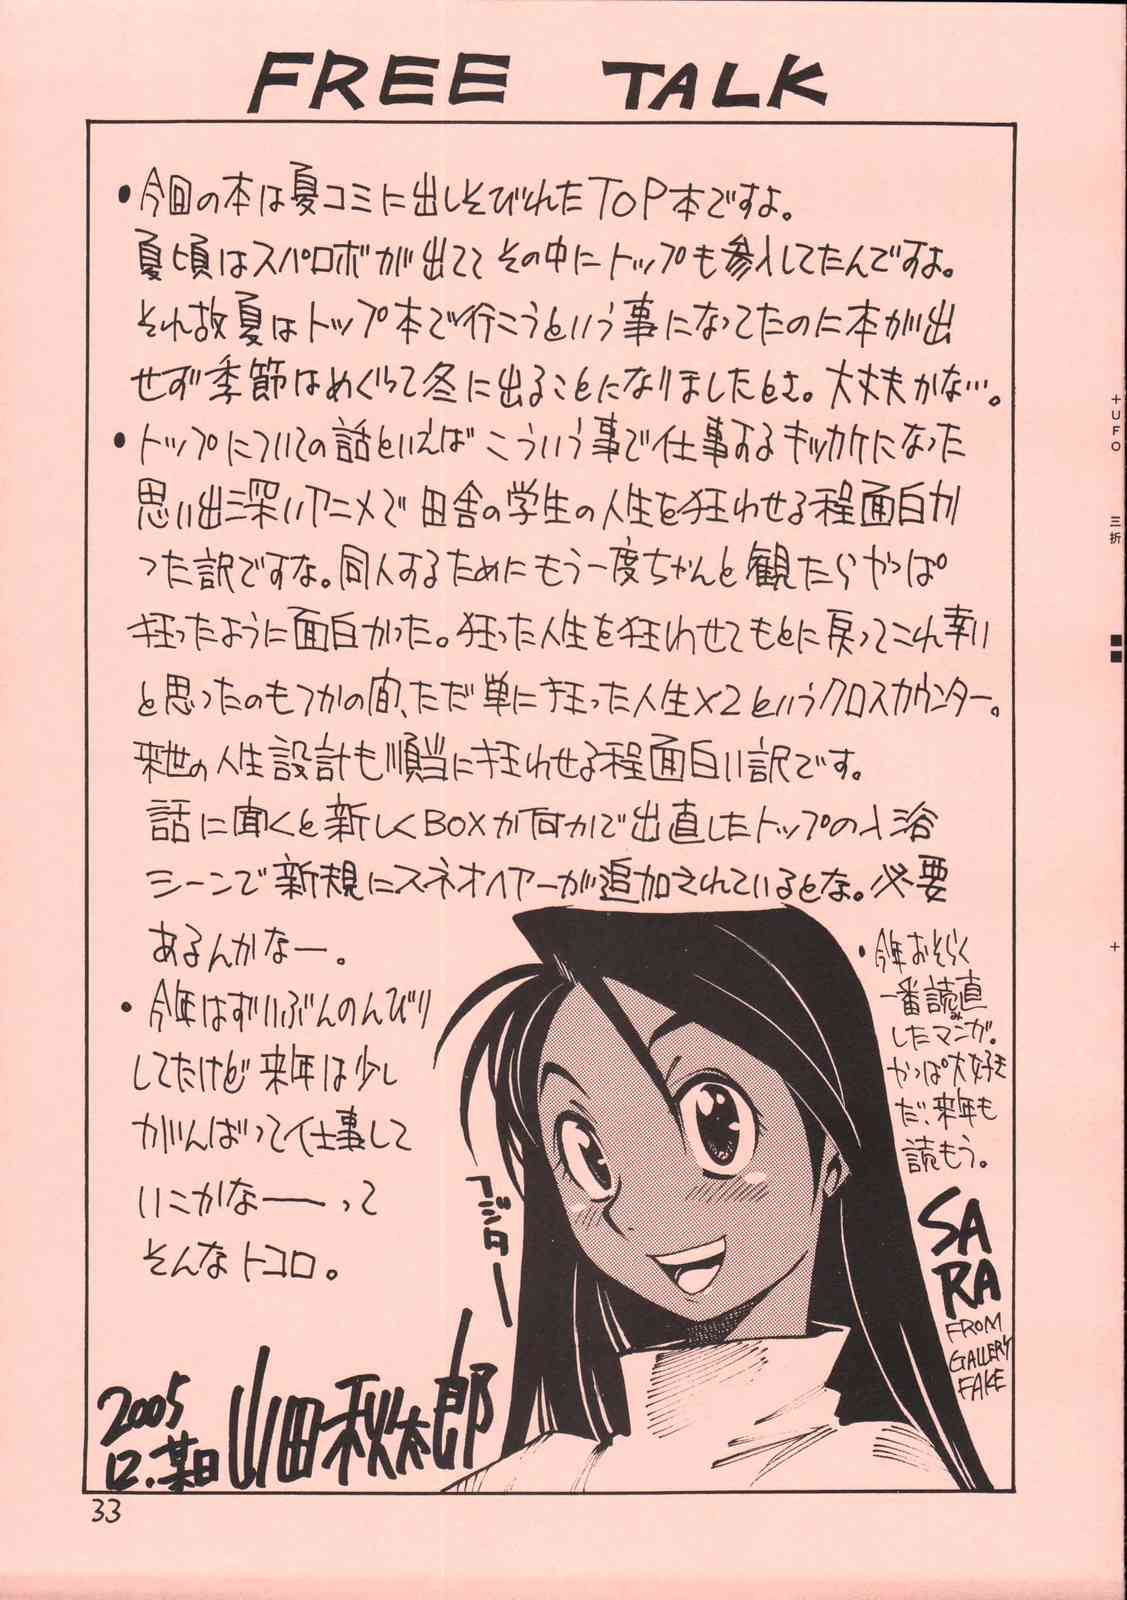 FREE TALK
・今回の本は夏コミに出しそびれたTOP本ですよ。
夏頃はスパロボが出ててその中にトップも参入してたんですよ。
それ故夏はトップ本で行こうという事になってたのに本が出
せず季節はめぐって冬に出ることになりましたとさ。大丈夫かな…。
・トップについての話といえばこういう事で仕事するキッカケになった
思い出深いアニメで田舎の学生の人生を狂わせる程面白か
った訳ですな。同人するためにもう一度ちゃんと観たらやっぱ
狂ったように面白かった。狂った人生を狂わせてもとに戻ってこれ幸い
と思ったのもつかの間、ただ単に狂った人生×2というクロスカウンター。
来世の人生設計も順当に狂わせる程面白い訳です。
話に聞くと新しくBOXが何かで出直したトップの入浴
シーンで新規にスネオヘアーが追加されているとな。必要
あるんかなー。
・今年はずいぶんのんびり
してたけど来年は少し
がんばって仕事して
いこかなーーって
そんなトコロ。
・今年おそらく
一番読み直
したマンガ。
やっぱ大好き
だ、来年も
読もう。
フジター
SA
RA
FROM
GALLERY
FAKE
2005
12.某日
山田秋太郎
33
+UFO 三折